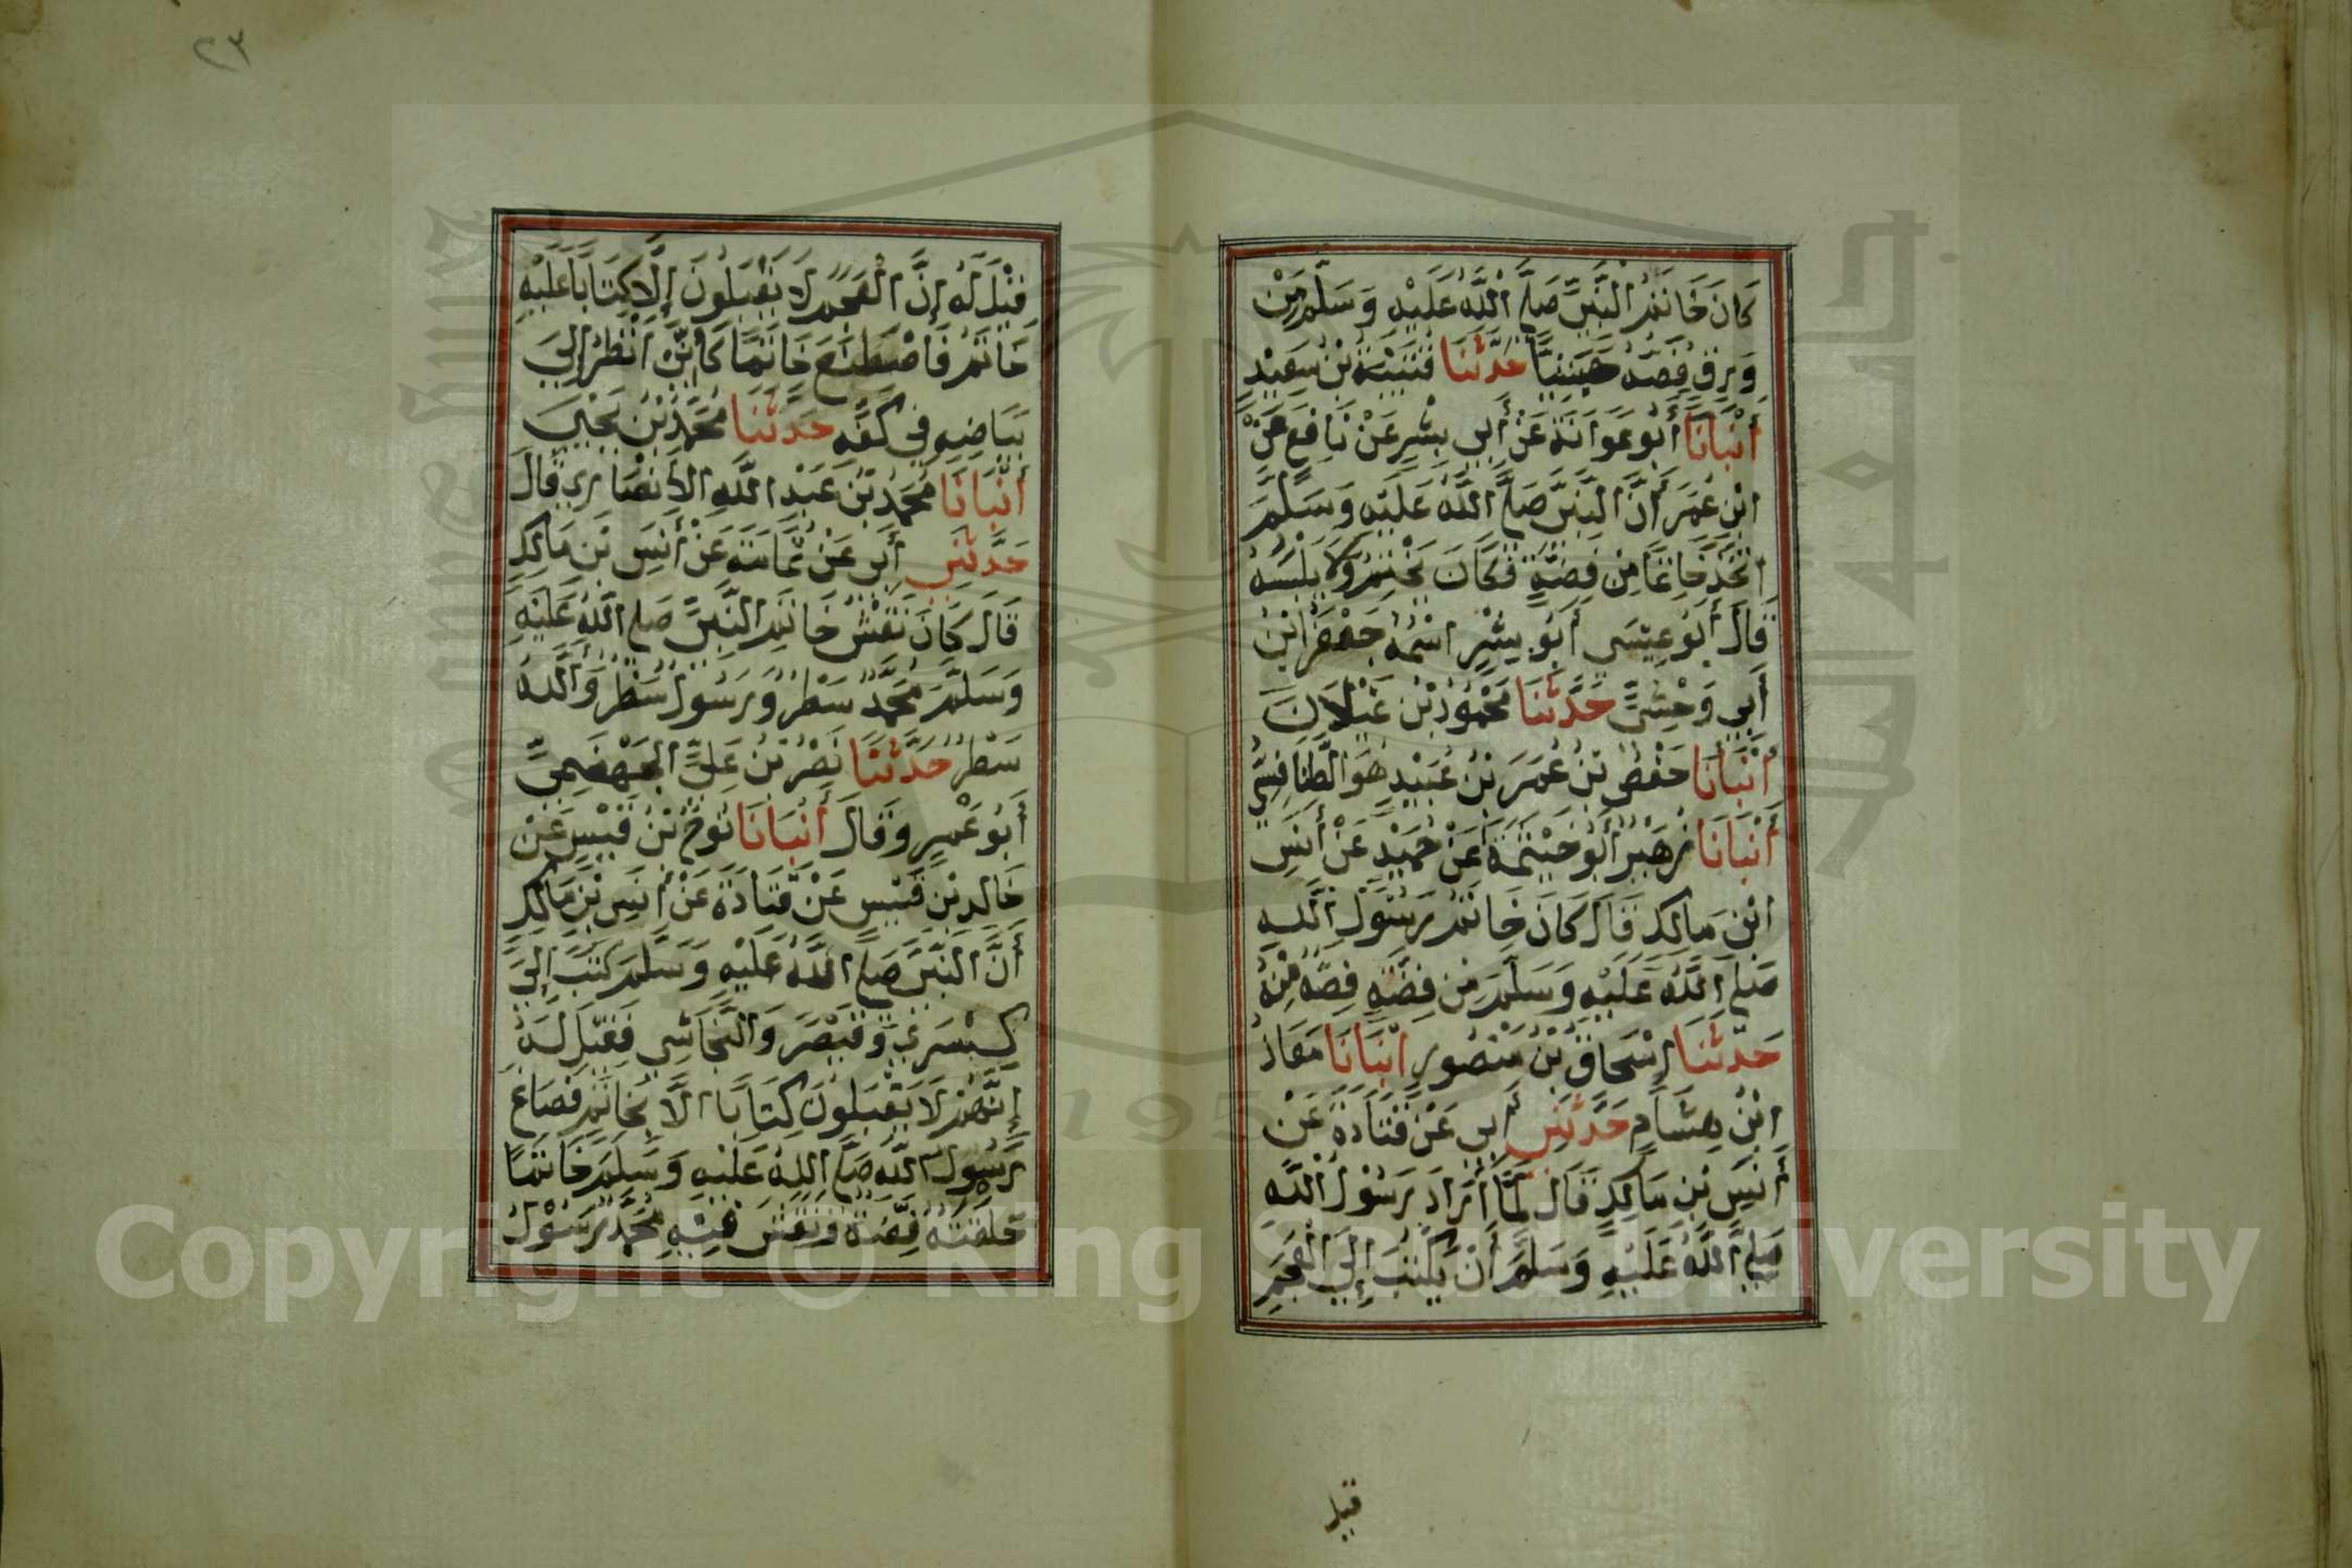 كَانَ خَاتَمُ النَّبِيِّ صَلَّى اللَّهُ عَلَيْهِ وَسَلَّمَ مِنْ
وَرِقٍ فَصُّهُ حَبَشِيًّا حَدَّثَنَا قُتَيْبَةُ بْنُ سَعِيدٍ
أَنْبَأَنَا أَبُو عَوَانَةَ عَنْ أَبِي بِشْرٍ عَنْ نَافِعٍ عَنْ
ابْنِ عُمَرَ أَنَّ النَّبِيَّ صَلَّى اللَّهُ عَلَيْهِ وَسَلَّمَ
اتَّخَذَ خَاتَمًا مِنْ فِضَّةٍ فَكَانَ يَخْتِمُ وَلَا يَلْبَسُهُ
قَالَ أَبُو عِيسَى أَبُو بِشْرٍ اسْمُهُ جَعْفَرُ ابْنُ
أَبِي وَحْشِيٍّ حَدَّثَنَا مَحْمُودُ بْنُ غَيْلَانَ
أَنْبَأَنَا حَفْصُ بْنُ عُمَرَ بْنُ عُبَيْدٍ هُوَ الطَّنَافِسِيُّ
أَنْبَأَنَا زُهَيْرٌ أَبُو خَيْثَمَةَ عَنْ حُمَيْدٍ عَنْ أَنَسِ
ابْنِ مَالِكٍ قَالَ كَانَ خَاتَمُ رَسُولِ اللَّهِ
صَلَّى اللَّهُ عَلَيْهِ وَسَلَّمَ مِنْ فِضَّةٍ فَصُّهُ مِنْهُ
حَدَّثَنَا إِسْحَاقُ بْنُ مَنْصُورٍ أَنْبَأَنَا مُعَاذُ
ابْنُ هِشَامٍ حَدَّثَنِي أَبِي عَنْ قَتَادَةَ عَنْ
أَنَسِ بْنِ مَالِكٍ قَالَ لَمَّا أَرَادَ رَسُولُ اللَّهِ
صَلَّى اللَّهُ عَلَيْهِ وَسَلَّمَ أَنْ يَكْتُبَ إِلَى الْعَجَمِ
قيل
٢٣
قِيلَ لَهُ إِنَّ الْعَجَمَ لَا يَقْبَلُونَ إِلَّا كِتَابًا عَلَيْهِ
خَاتَمٌ فَاصْطَنَعَ خَاتَمًا كَأَنِّي أَنْظُرُ إِلَى
بَيَاضِهِ فِي كَفِّهِ حَدَّثَنَا مُحَمَّدُ بْنُ يَحْيَى
أَنْبَأَنَا مُحَمَّدُ بْنُ عَبْدِ اللَّهِ الْأَنْصَارِي قَالَ
حَدَّثَنِي أَبِي عَنْ ثُمَامَةَ عَنْ أَنَسِ بْنِ مَالِكٍ
قَالَ كَانَ نَقْشُ خَاتَمِ النَّبِيِّ صَلَّى اللَّهُ عَلَيْهِ
وَسَلَّمَ مُحَمَّدٌ سَطْرٌ وَرَسُولُ سَطْرٌ وَاللَّهُ
سَطْرٌ حَدَّثَنَا نَصْرُ بْنُ عَلِيٍّ الْجَهْضَمِيُّ
أَبُو عَمْرٍو وَقَالَ أَنْبَأَنَا نُوحُ بْنُ قَيْسٍ عَنْ
خَالِدِ بْنِ قَيْسٍ عَنْ قَتَادَةَ عَنْ أَنَسِ بْنِ مَالِكٍ
أَنَّ النَّبِيَّ صَلَّى اللَّهُ عَلَيْهِ وَسَلَّمَ كَتَبَ إِلَى
كِسْرَى وَقَيْصَرَ وَالنَّجَاشِي فَقِيلَ لَهُ
إِنَّهُمْ لَا يَقْبَلُونَ كِتَابًا الَّا بِخَاتَمٍ فَصَاغَ
رَسُولُ اللَّهِ صَلَّى اللَّهُ عَلَيْهِ وَسَلَّمَ خَاتَمًا
حَلْقَتُهُ فِضَّةٌ وَنَقَشَ فِيهِ مُحَمَّدٌ رَسُولُ
Copyright © King Saud University